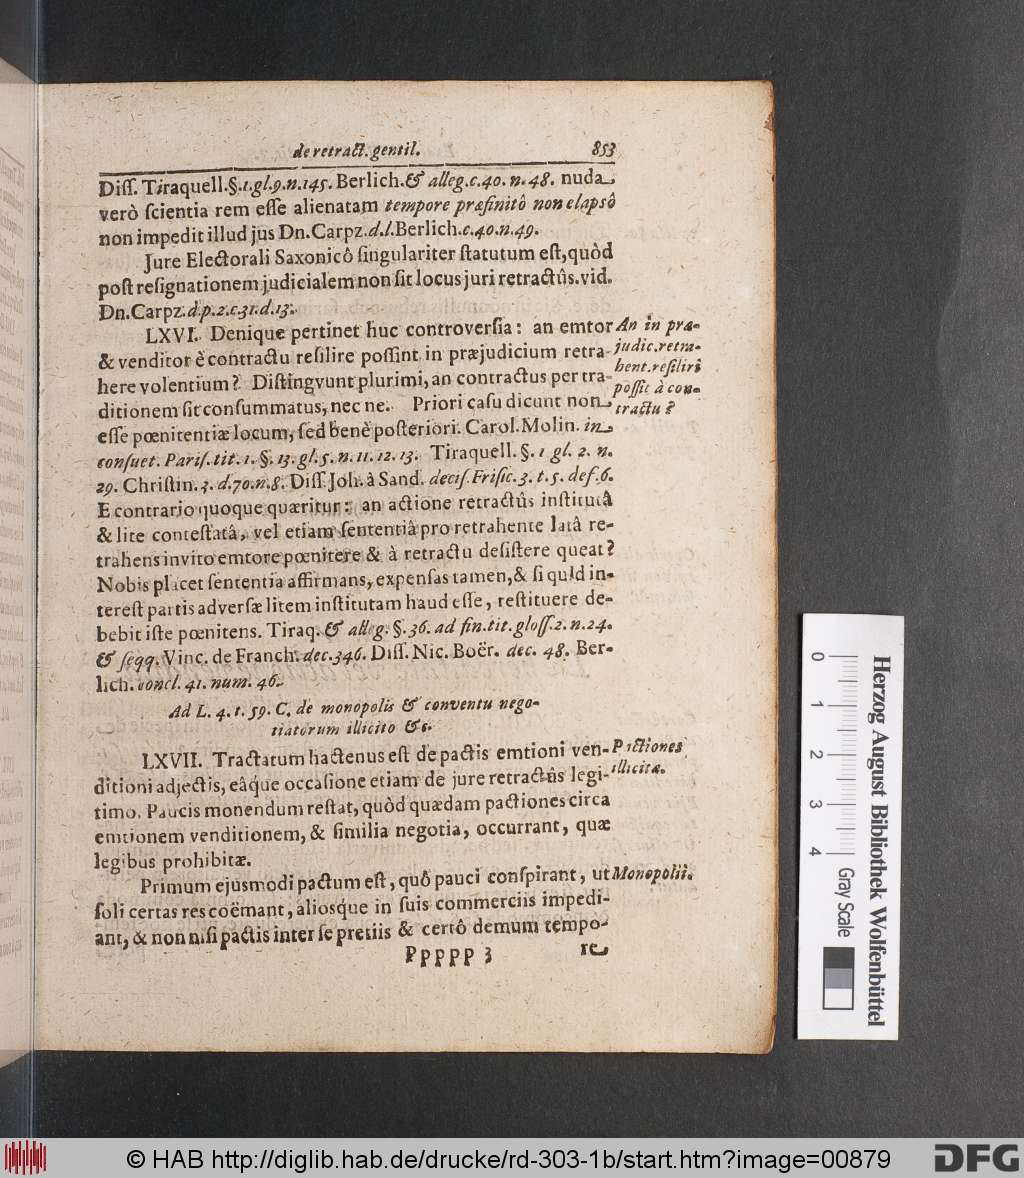 de retract. gentil. 853
Diſſ. Tiraquell.§.1.gl.9.n.145. Berlich.& alleg.c.40. n.48. nuda
verò ſcientia rem eſſe alienatam tempore præfinitô non elapsô
non impedit illud jus Dn.Carpz.d.l.Berlich.c.40.n.49.
Jure Electorali Saxonicô ſingulariter ſtatutum eſt, quòd
poſt reſignationem judicialem non ſit locus juri retractûs.vid.
Dn.Carpz.d.p.2.c.31.d.13.
LXVI. Denique pertinet huc controverſia: an emtor
& venditor è contractu reſilire poſſint in præjudicium retra-
here volentium? Diſtingvunt plurimi, an contractus per tra-
ditionem ſit conſummatus, nec ne. Priori caſu dicunt non
eſſe pœnitentiæ locum, ſed benè poſteriori. Carol. Molin. in
conſuet. Pariſ.tit.1.§.13.gl.5.n.11.12.13. Tiraquell.§.1 gl.2.n.
29. Chriſtin.3.d.70.n.8. Diſſ. Joh. à Sand. deciſ.Friſic.3.t.5.def.6.
E contrario quoque quæritur: an actione retractûs inſtitutâ
& lite conteſtatâ, vel etiam ſententiâ pro retrahente latâ re-
trahens invito emtore pœnitere & à retractu deſiſtere queat?
Nobis placet ſententia affirmans, expenſas tamen, & ſi quid in-
tereſt partis adverſæ litem inſtitutam haud eſſe, reſtituere de-
bebit iſte pœnitens. Tiraq. & alleg.§.36. ad fin.tit.gloſſ.2.n.24.
& ſeqq. Vinc. de Franch. dec.346. Diſſ. Nic. Boër. dec. 48. Ber-
lich. concl. 41. num. 46.
An in præ-
judic.retra-
hent.reſilire
poſſit à con-
tractu?
Ad L. 4. t. 59. C. de monopolis & conventu nego-
tiatorum illicito &c.
LXVII. Tractatum hactenus eſt de pactis emtioni ven-
ditioni adjectis, eâque occaſione etiam de jure retractûs legi-
timo. Paucis monendum reſtat, quòd quædam pactiones circa
emtionem venditionem, & ſimilia negotia, occurrant, quæ
legibus prohibitæ.
Pactiones
illicitæ.
Primum ejusmodi pactum eſt, quô pauci conſpirant, ut
ſoli certas res coëmant, aliosq́ue in ſuis commerciis impedi-
ant, & non niſi pactis inter ſe pretiis & certô demum tempo-
Monopolii.
Ppppp 3 re
0
1
2
3
4
Gray Scale
Herzog August Bibliothek Wolfenbüttel
© HAB http://diglib.hab.de/drucke/rd-303-1b/start.htm?image=00879
DFG